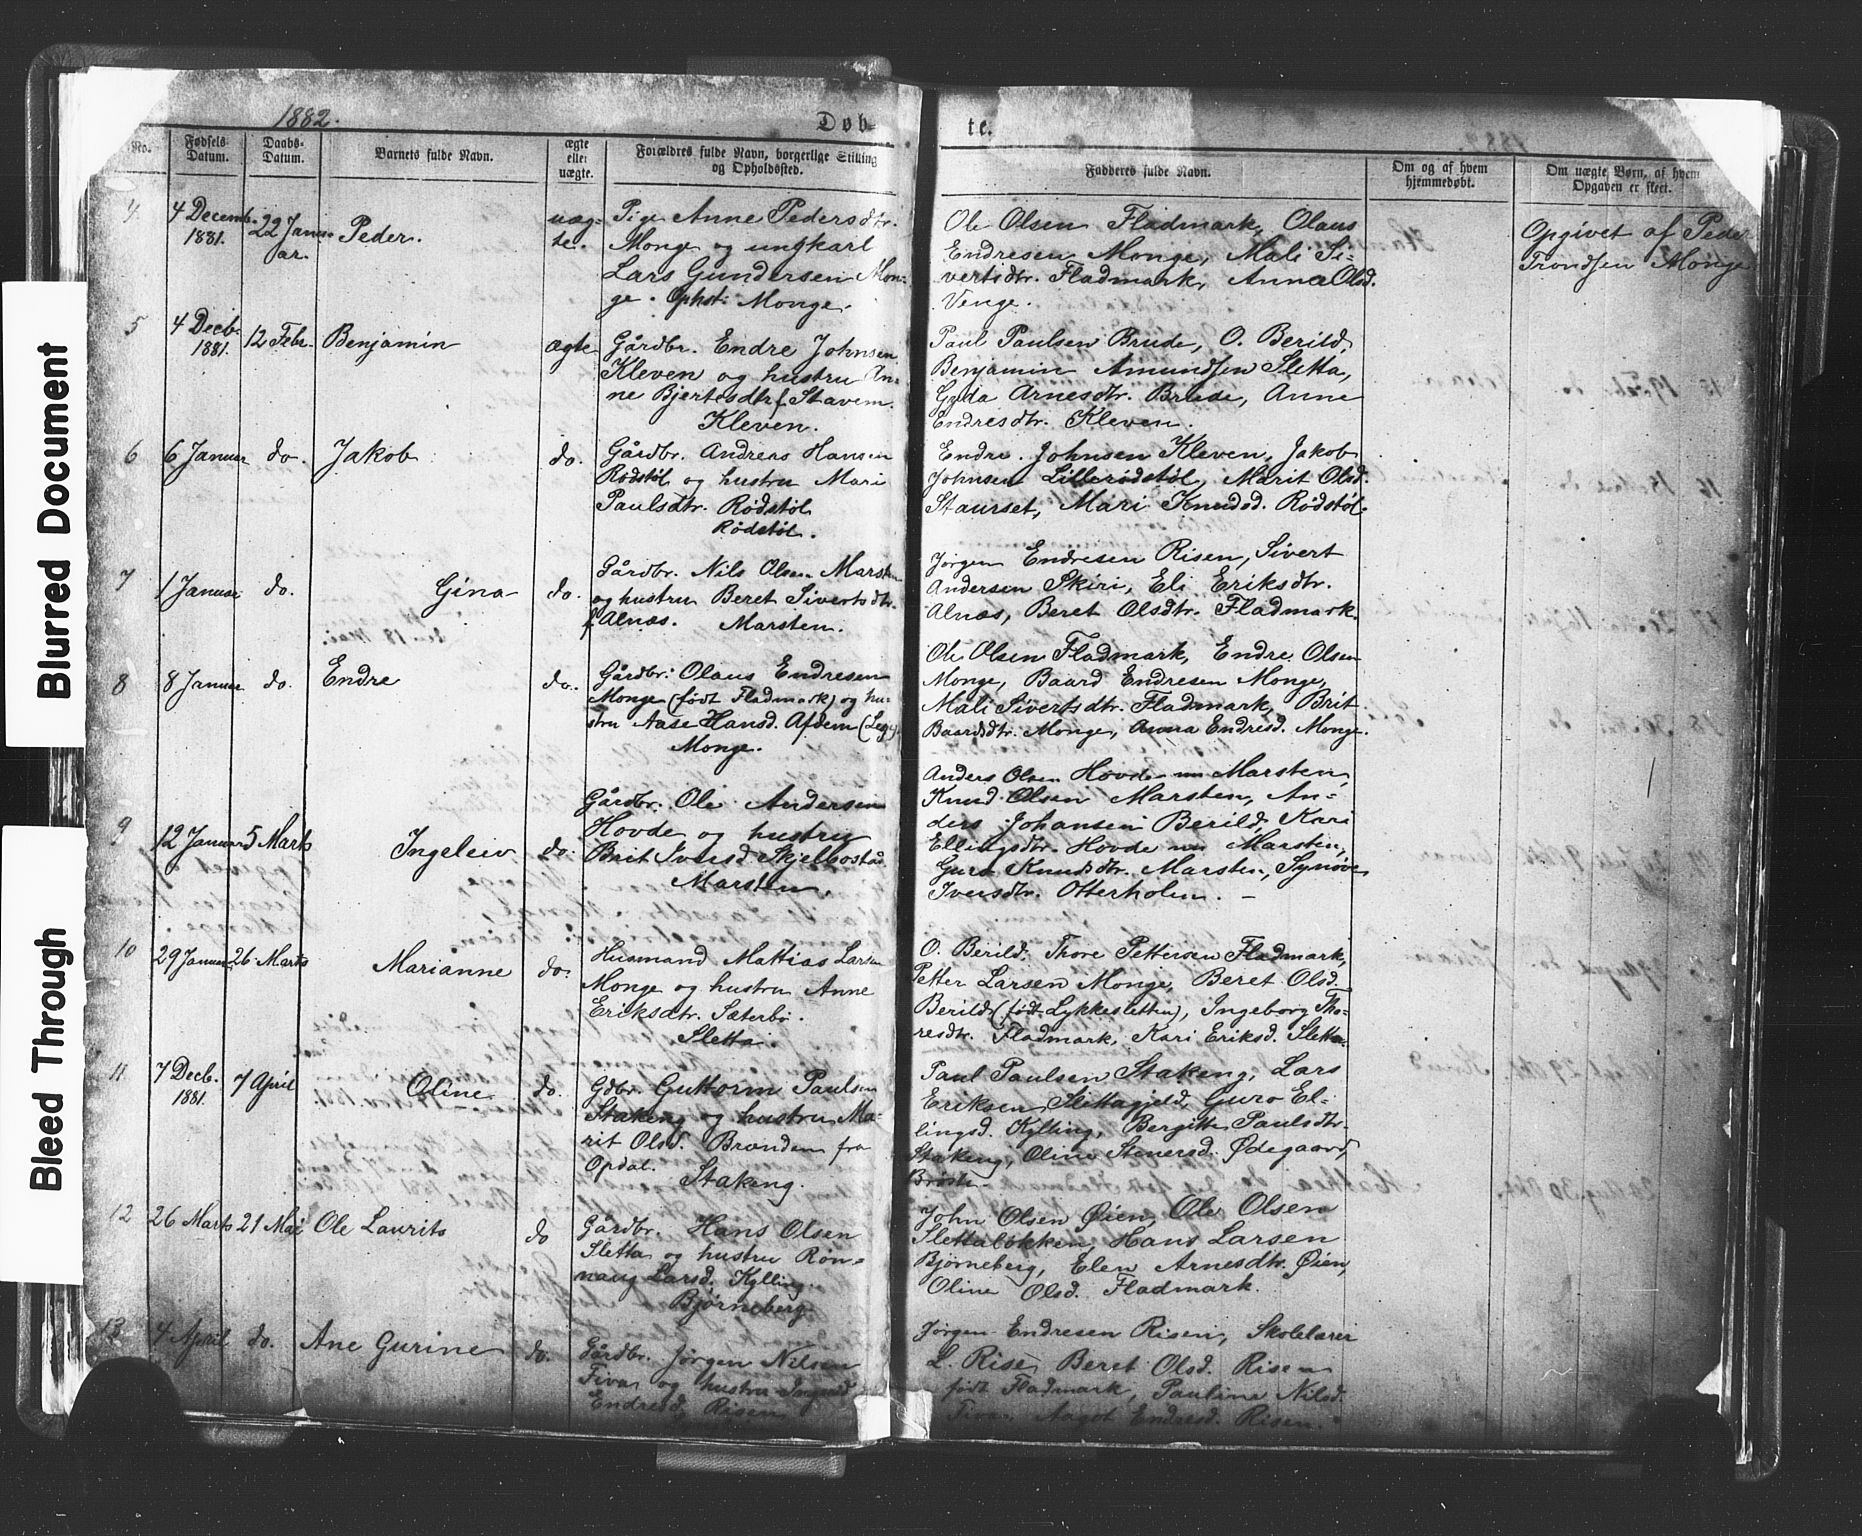 Blurred Document
Bleed Through
1882.
Døb-
te.
No.
Fødsels
Datum.
Daabs-
Datum.
Barnets fulde Navn.
ægte
eller
uægte.
Forældres fulde Navn, borgerlige Stilling
og Opholdssted.
Faddernes fulde Navn.
Om og af hvem
hjemmedøbt.
Om uægte Børn, af hvem
Opgaven er skeet.
4
4 Decemb.
1881.
22 Janu-
ar.
Peder.
uæg-
te.
Pige Anne Pedersdtr.
Monge og ungkarl
Lars Gundersen Mon-
ge. Ophst: Monge.
Ole Olsen Fladmark, Olaus
Endresen Monge, Mali Si-
vertsdtr. Fladmark, Anna Olsd.
Venge.
Opgivet af Peder
Trondsen Monge
5
4 Decb.
1881.
12 Febr.
Benjamin
ægte
Gårdbr. Endre Johnsen
Kleven og hustru An-
ne Bjertesdtr. f. Stavem.
Kleven.
Paul Paulsen Brude, O. Berild,
Benjamin Amundsen Sletta,
Gyda Arnesdtr. Brude, Anne
Endresdtr. Kleven.
6
6 Januar
do.
Jakob
do.
Gårdbr. Andreas Hansen
Rødstøl og hustru Mari
Paulsdtr. Rødstøl
Rødstøl.
Endre Johnsen Kleven, Jakob
Johnsen Lillerødstøl, Marit Olsd.
Staurset, Mari Knudsd. Rødstøl.
7
1 Januar
do.
Gina
do.
Gårdbr. Nils Olsen Marsten
og hustru Beret Sivertsdtr.
f. Alnæs. Marsten.
Jørgen Endresen Risen, Sivert
Andersen Skiri, Eli Eriksdtr.
Alnæs, Beret Olsdtr. Fladmark.
8
8 Januar
do.
Endre
do.
Gårdbr: Olaus Endresen
Monge (født Fladmark) og hu-
stru Aase Hansd. Afdem (Leg.)
Monge.
Ole Olsen Fladmark, Endre Olsen
Monge, Baard Endresen Monge,
Mali Sivertsdtr. Fladmark, Brit
Baardsdtr. Monge, Anna Endresd. Monge.
9
12 Januar
5 Marts
Ingeleiv
do.
Gårdbr. Ole Andersen
Hovde og hustru
Brit Iversd. Skjelbostad
Marsten.
Anders Olsen Hovde nu Marsten,
Knud Olsen Marsten, An-
ders Johansen Berild, Kari
Ellingsdtr. Hovde nu Marsten,
Guro Knudsdtr. Marsten, Synøve
Iversdtr. Otterholm. –
10
29 Januar
26 Marts
Marianne
do.
Husmand Mattias Larsen
Monge og hustru Anne
Eriksdtr. Sæterbø.
Sletta.
O. Berild, Thore Pettersen Fladmark,
Petter Larsen Monge, Beret Olsd.
Berild (født Lykkesletten), Ingeborg Tho-
resdtr. Fladmark, Kari Eriksd. Sletta.
11
7 Decb.
1881.
7 April
Oline
do.
Gdbr. Guttorm Paulsen
Stakeng og hustru Ma-
rit Olsd. Brænden fra
Opdal. Stakeng.
Paul Paulsen Stakeng, Lars
Eriksen Slettagjeld, Guro El-
lingsd. Kylling, Bergitte Paulsdtr.
Stakeng, Oline Stenersd. Ødegaard,
Brøste.
12
26 Marts
21 Mai
Ole Laurits
do
Gårdbr. Hans Olsen
Sletta og hustru Røn-
naug Larsd. Kylling.
Bjørneberg.
John Olsen Øien, Ole Olsen
Slettaløkken, Hans Larsen
Bjørneberg, Elen Arnesdtr. Øien,
Oline Olsd. Fladmark.
13
4 April
do.
Ane Gurine
do.
Gårdbr. Jørgen Nilsen
Tiva og hustru
Endresd. Risen
Jørgen Endresen Risen, Skolelærer
L. Rise, Beret Olsd. Risen
født Fladmark, Pauline Nilsd.
Tiva, Aagot Endresd. Risen.